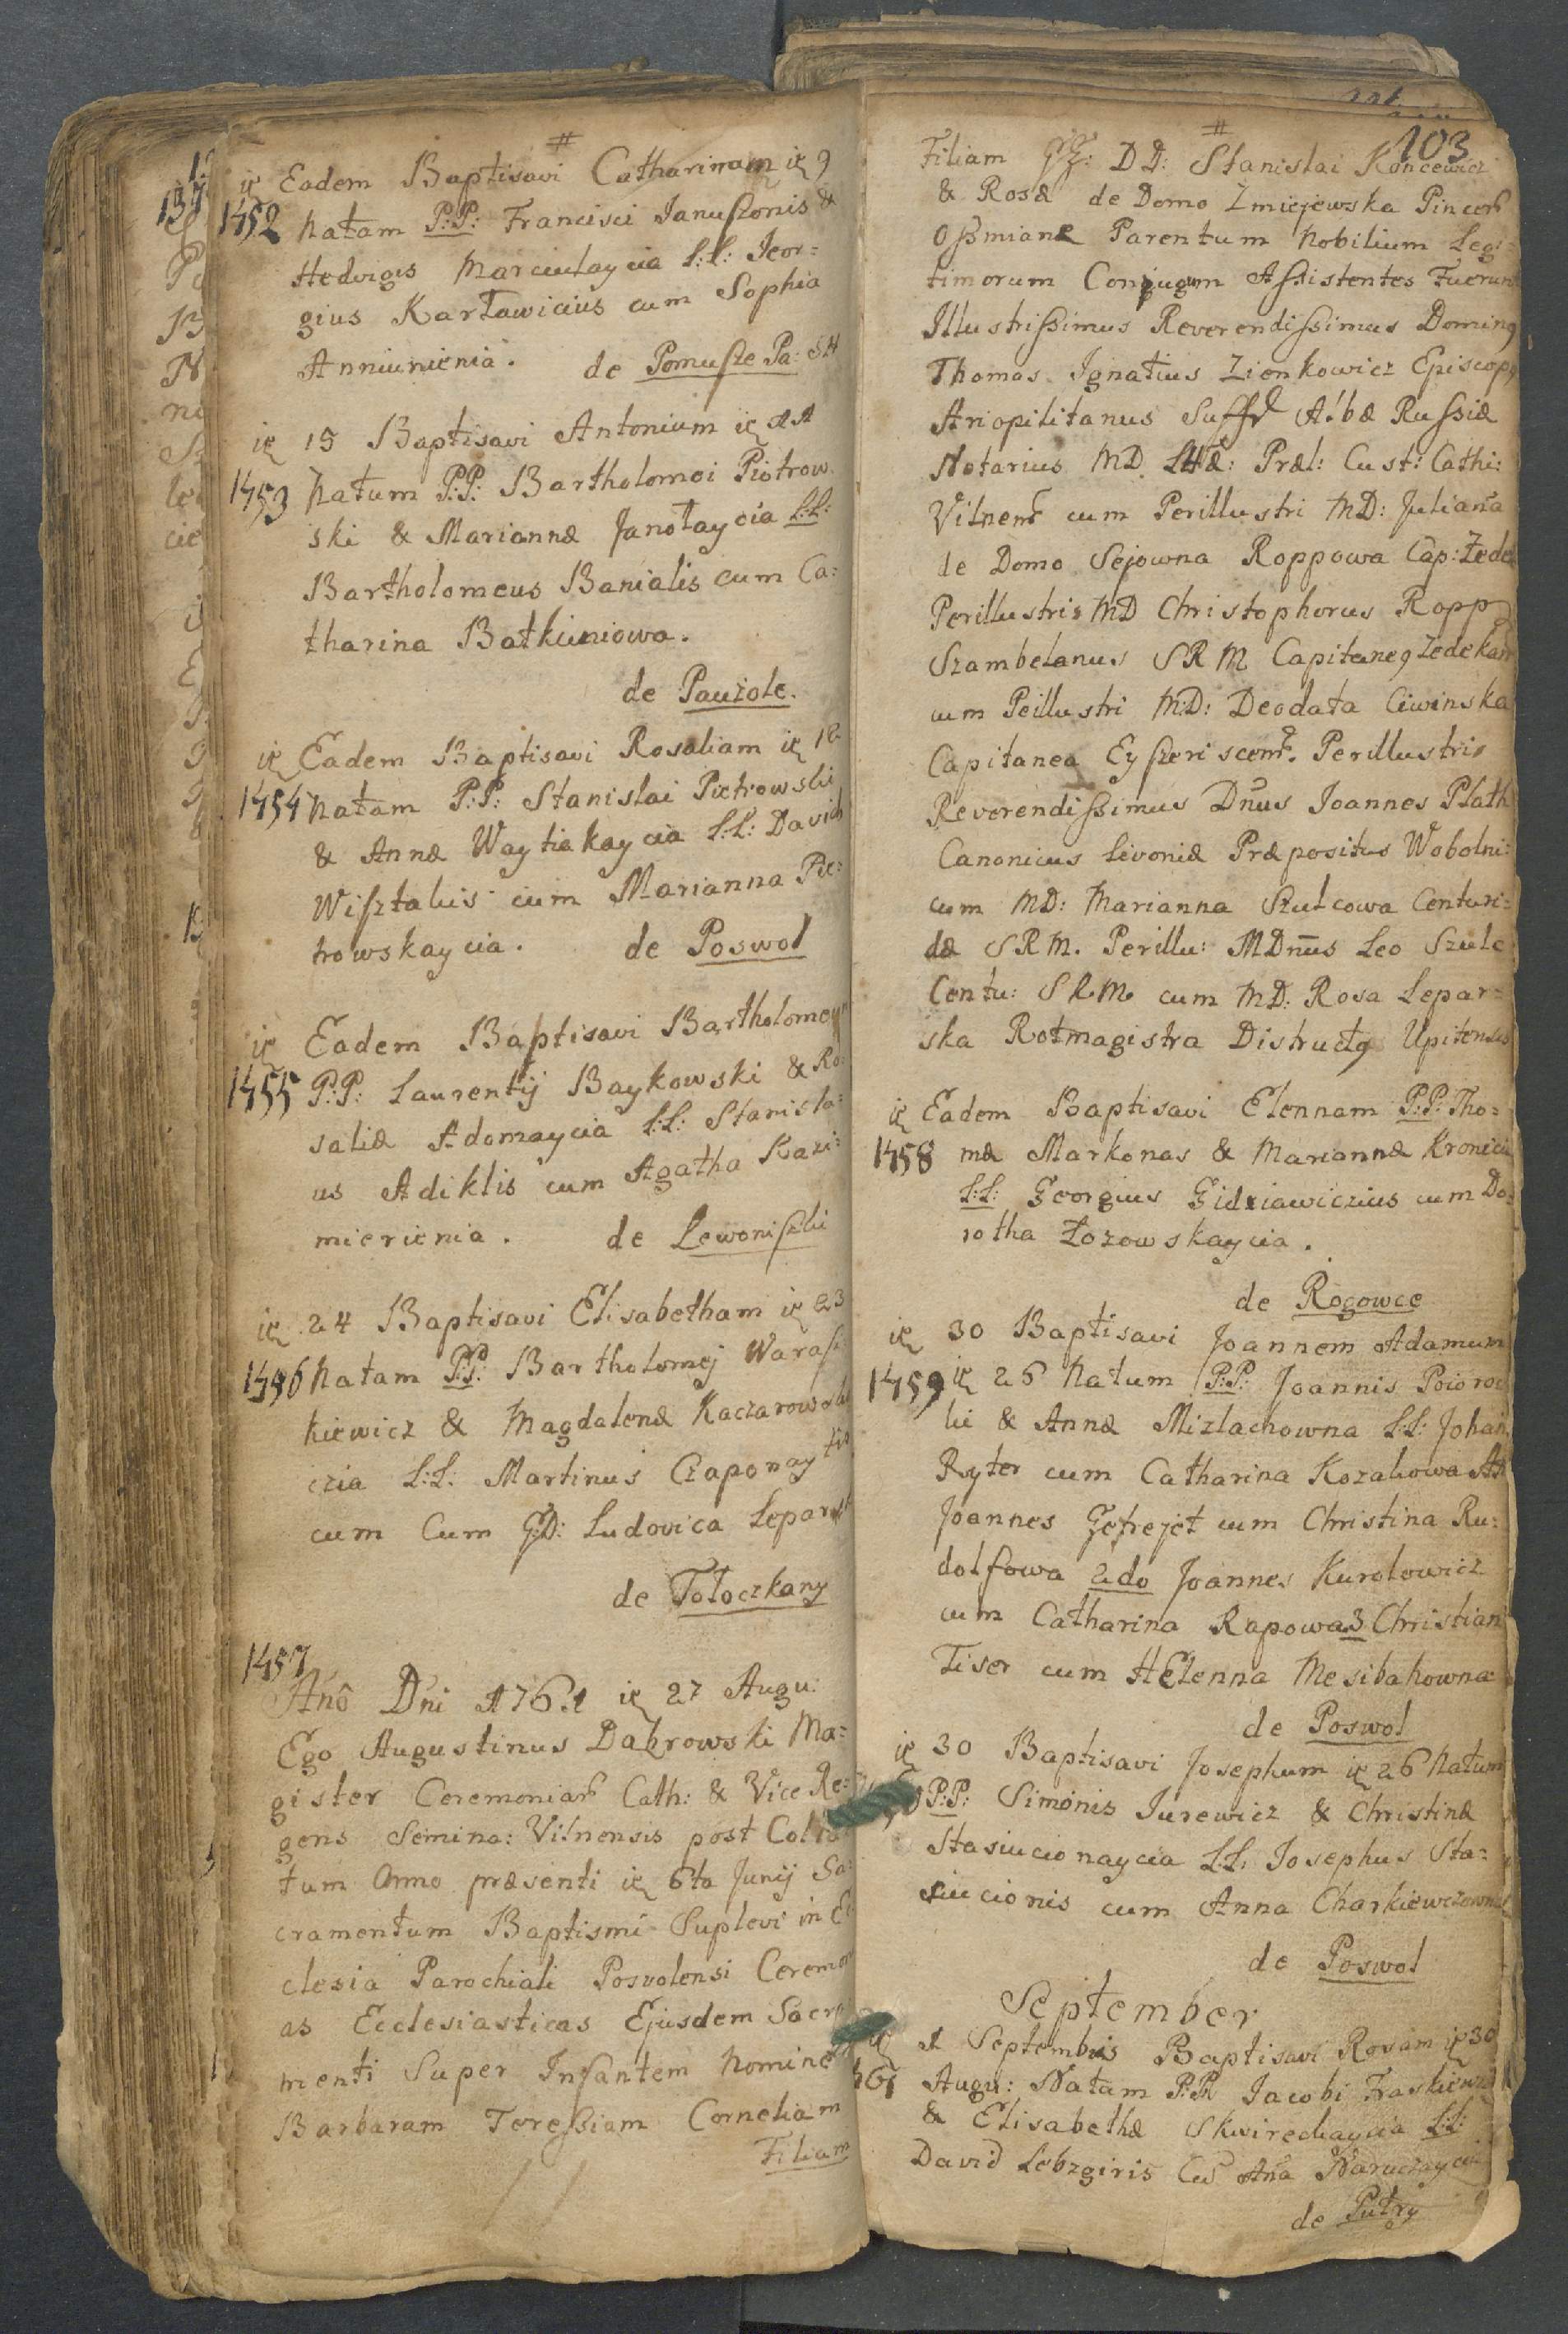 #
ię Eadem Baptisavi Catharinam ię 9
1452 Natam P:P: Francisci Janußonis &
Hedvigis Marciulaycia L:L: Jeor=
gius Kartawicius cum Sophia
Anniunienia. de Pomuße Pa:
ię 15 Baptisavi Antonium ię 11
1453 Natum P:P: Bartholomei Piotrow
ski & Mariannæ Janotaycia L:L:
Bartholomeus Banialis cum Ca:
tharina Batkuniowa.
de Pauzole.
ię Eadem Baptisavi Rosaliam ię
1454 Natam P:P: Stanislai Pietrowski
& Annæ Waytiekaycia L:L: David
Wisztalus cum Marianna Pie:
trowskaycia. de Poswol
ię Eadem Baptisavi Bartholomeum
1455 P:P: Laurentij Baykowski & Ro:
saliæ Adomaycia L:L: Stanisla:
us Adiklis cum Agatha Kazi:
mierienia. de Lewoniszki
ię 24 Baptisavi Elisabetham ię 23
1456 Natam P:P: Bartholomej Waraß
kiewicz & Magdalenæ
czia L:L: Martinus Czaponaytis
cum Cum G:D: Ludovica
de Totoczkany
1457
Anô Dni 1761 ię 27 Augu:
Ego Augustinus Dabrowski Ma=
gister Ceremoniar Cath: & Vice Re:
gens Semina: Vilnensis post Colla
tum Anno præsenti ię 6ta Junij Sa:
cramentum Baptismi Suplevi in Ec
clesia Parochiali Posvolensi Ceremon
as Ecclesiasticas Ejusdem Sacra
menti Super Infantem Nomine
Barbaram Tereßiam Corneliam
Filiam
#
103
Filiam GG: DD: Stanislai Koncewicz
& Rosæ de Domo Zmiejewska Pincer
Oßmianæ Parentum Nobilium Legi=
timorum Conjugum Aßistentes Fuerunt
Illustrißimus Reverendißimus Dominq
Thomas Ignatius Zienkowicz Episcopq
Ariopilitanus Suffr Albæ Rußiæ
Notarius MD Præl: Cust: Cath:
Vilnen cum Perillustri MD: Juliana
de Domo Sejowna Roppowa Cap: Zedek
Perillustris MD Christophorus Ropp
Szambelanus SRM Capitaneq Zedekan
cum Peillustri M:D: Deodata Ciwinska
Capitanea Eyßeriscen. Perillustris
Reverendißimus Dnus Joannes Plath
Canonicus Livoniæ Præpositus Wobolni:
cum MD: Marianna Szulcowa Centuri=
dæ SRM. Perillu: MDnus Leo Szulc
Centu: SRM cum MD: Rosa Lepar=
ska Rotmagistra Districtq Upitensis
ię Eadem Baptisavi Elennam P:P: Tho=
1458 mæ Markonas & Mariannæ
L:L: Georgius Gidziawiczius cum Do=
rotha Łozowskaycia.
de Rogowce
ię 30 Baptisavi Joannem Adamum
1459 ię 26 Natum P:P: Joannis
ki & Annæ Mizlachowna L:L: Johan
Ryter cum Catharina Kozakowa
Joannes Gefrejet cum Christina Ru:
dolfowa 2do Joannes Kurolowicz
cum Catharina Rapowa 3 Christian
Tiser cum HElenna Mesibahowna
de Poswol
ię 30 Baptisavi Josephum ię 26 Natum
P:P: Simonis Jurewicz & Christinæ
Stasiucionaycia L:L: Josephus Sta=
siucionis cum Anna Charkiewiczowna
de Poswol
September
ię 1 Septembris Baptisavi Rosam ię 30
461 Augu: Natam P:P: Jacobi
& Elisabethæ L:L:
David Lebzgiris Cu Ana
de Putry